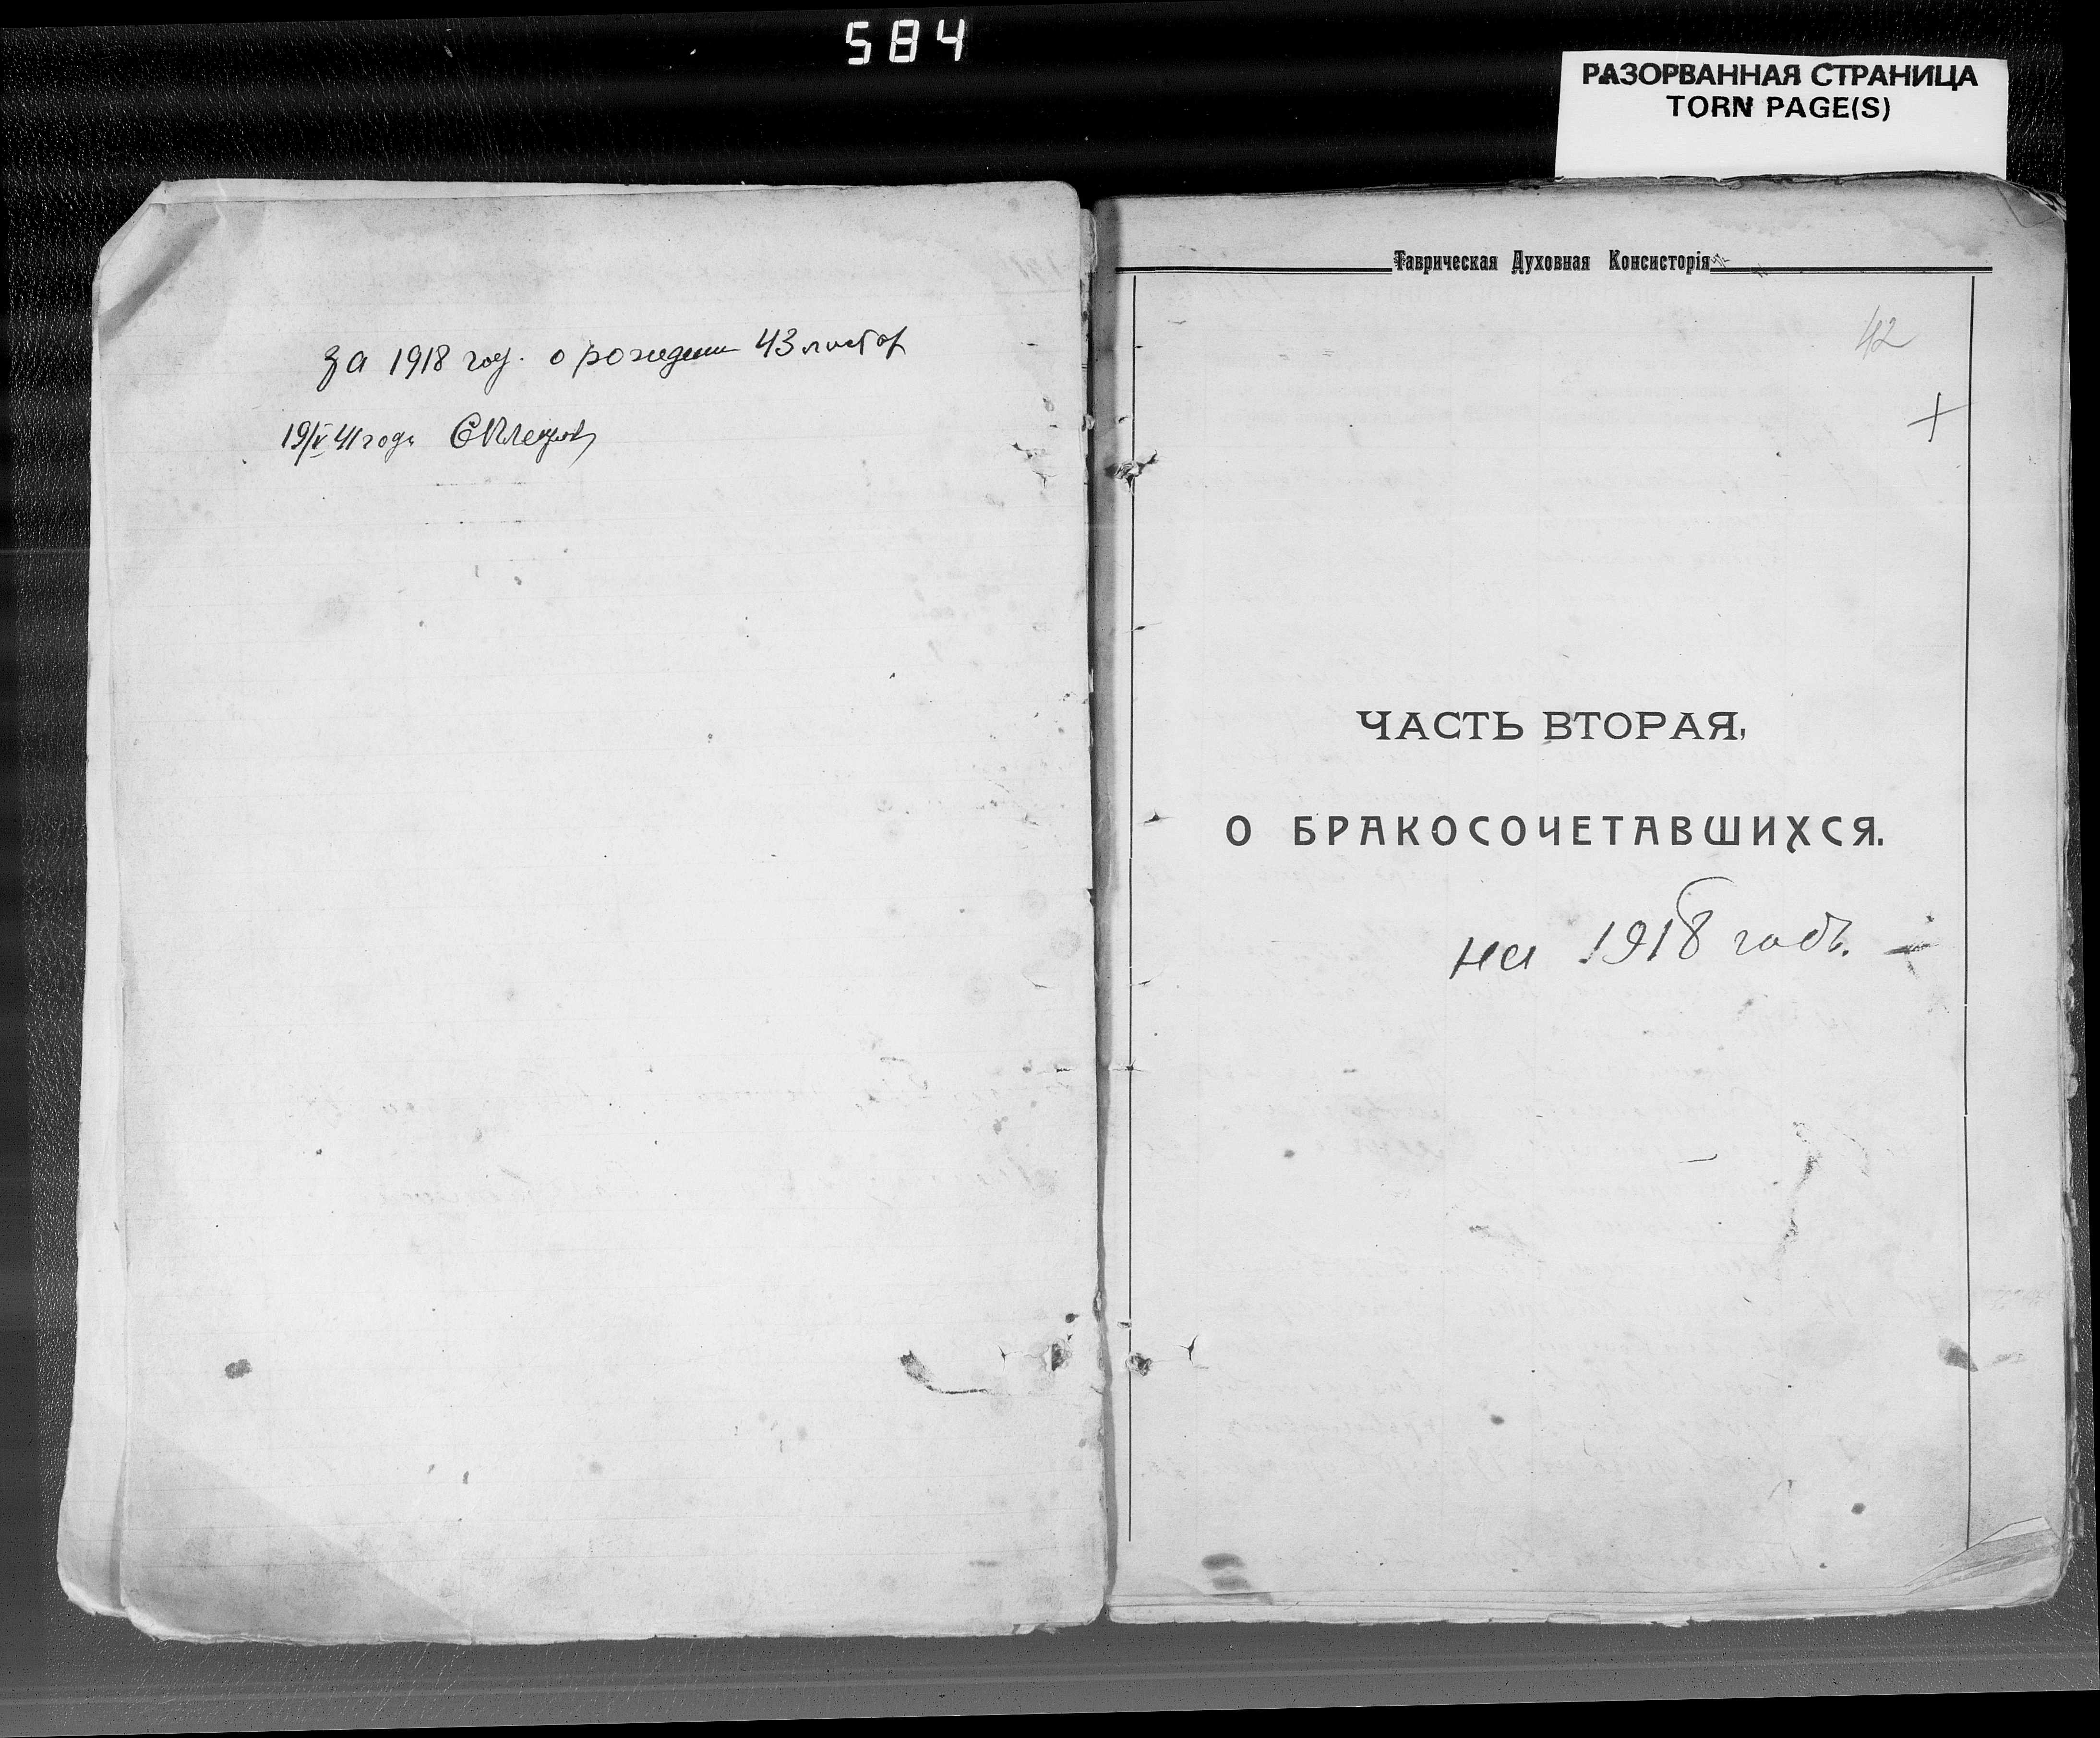 584
РАЗОРВАННАЯ СТРАНИЦА
TORN PAGE(S)
за 1918 год. о рождении 43 листа
19/V 41 года
Таврическая Духовная Консисторія
42
ЧАСТЬ ВТОРАЯ,
О БРАКОСОЧЕТАВШИХСЯ.
на 1918 годъ.